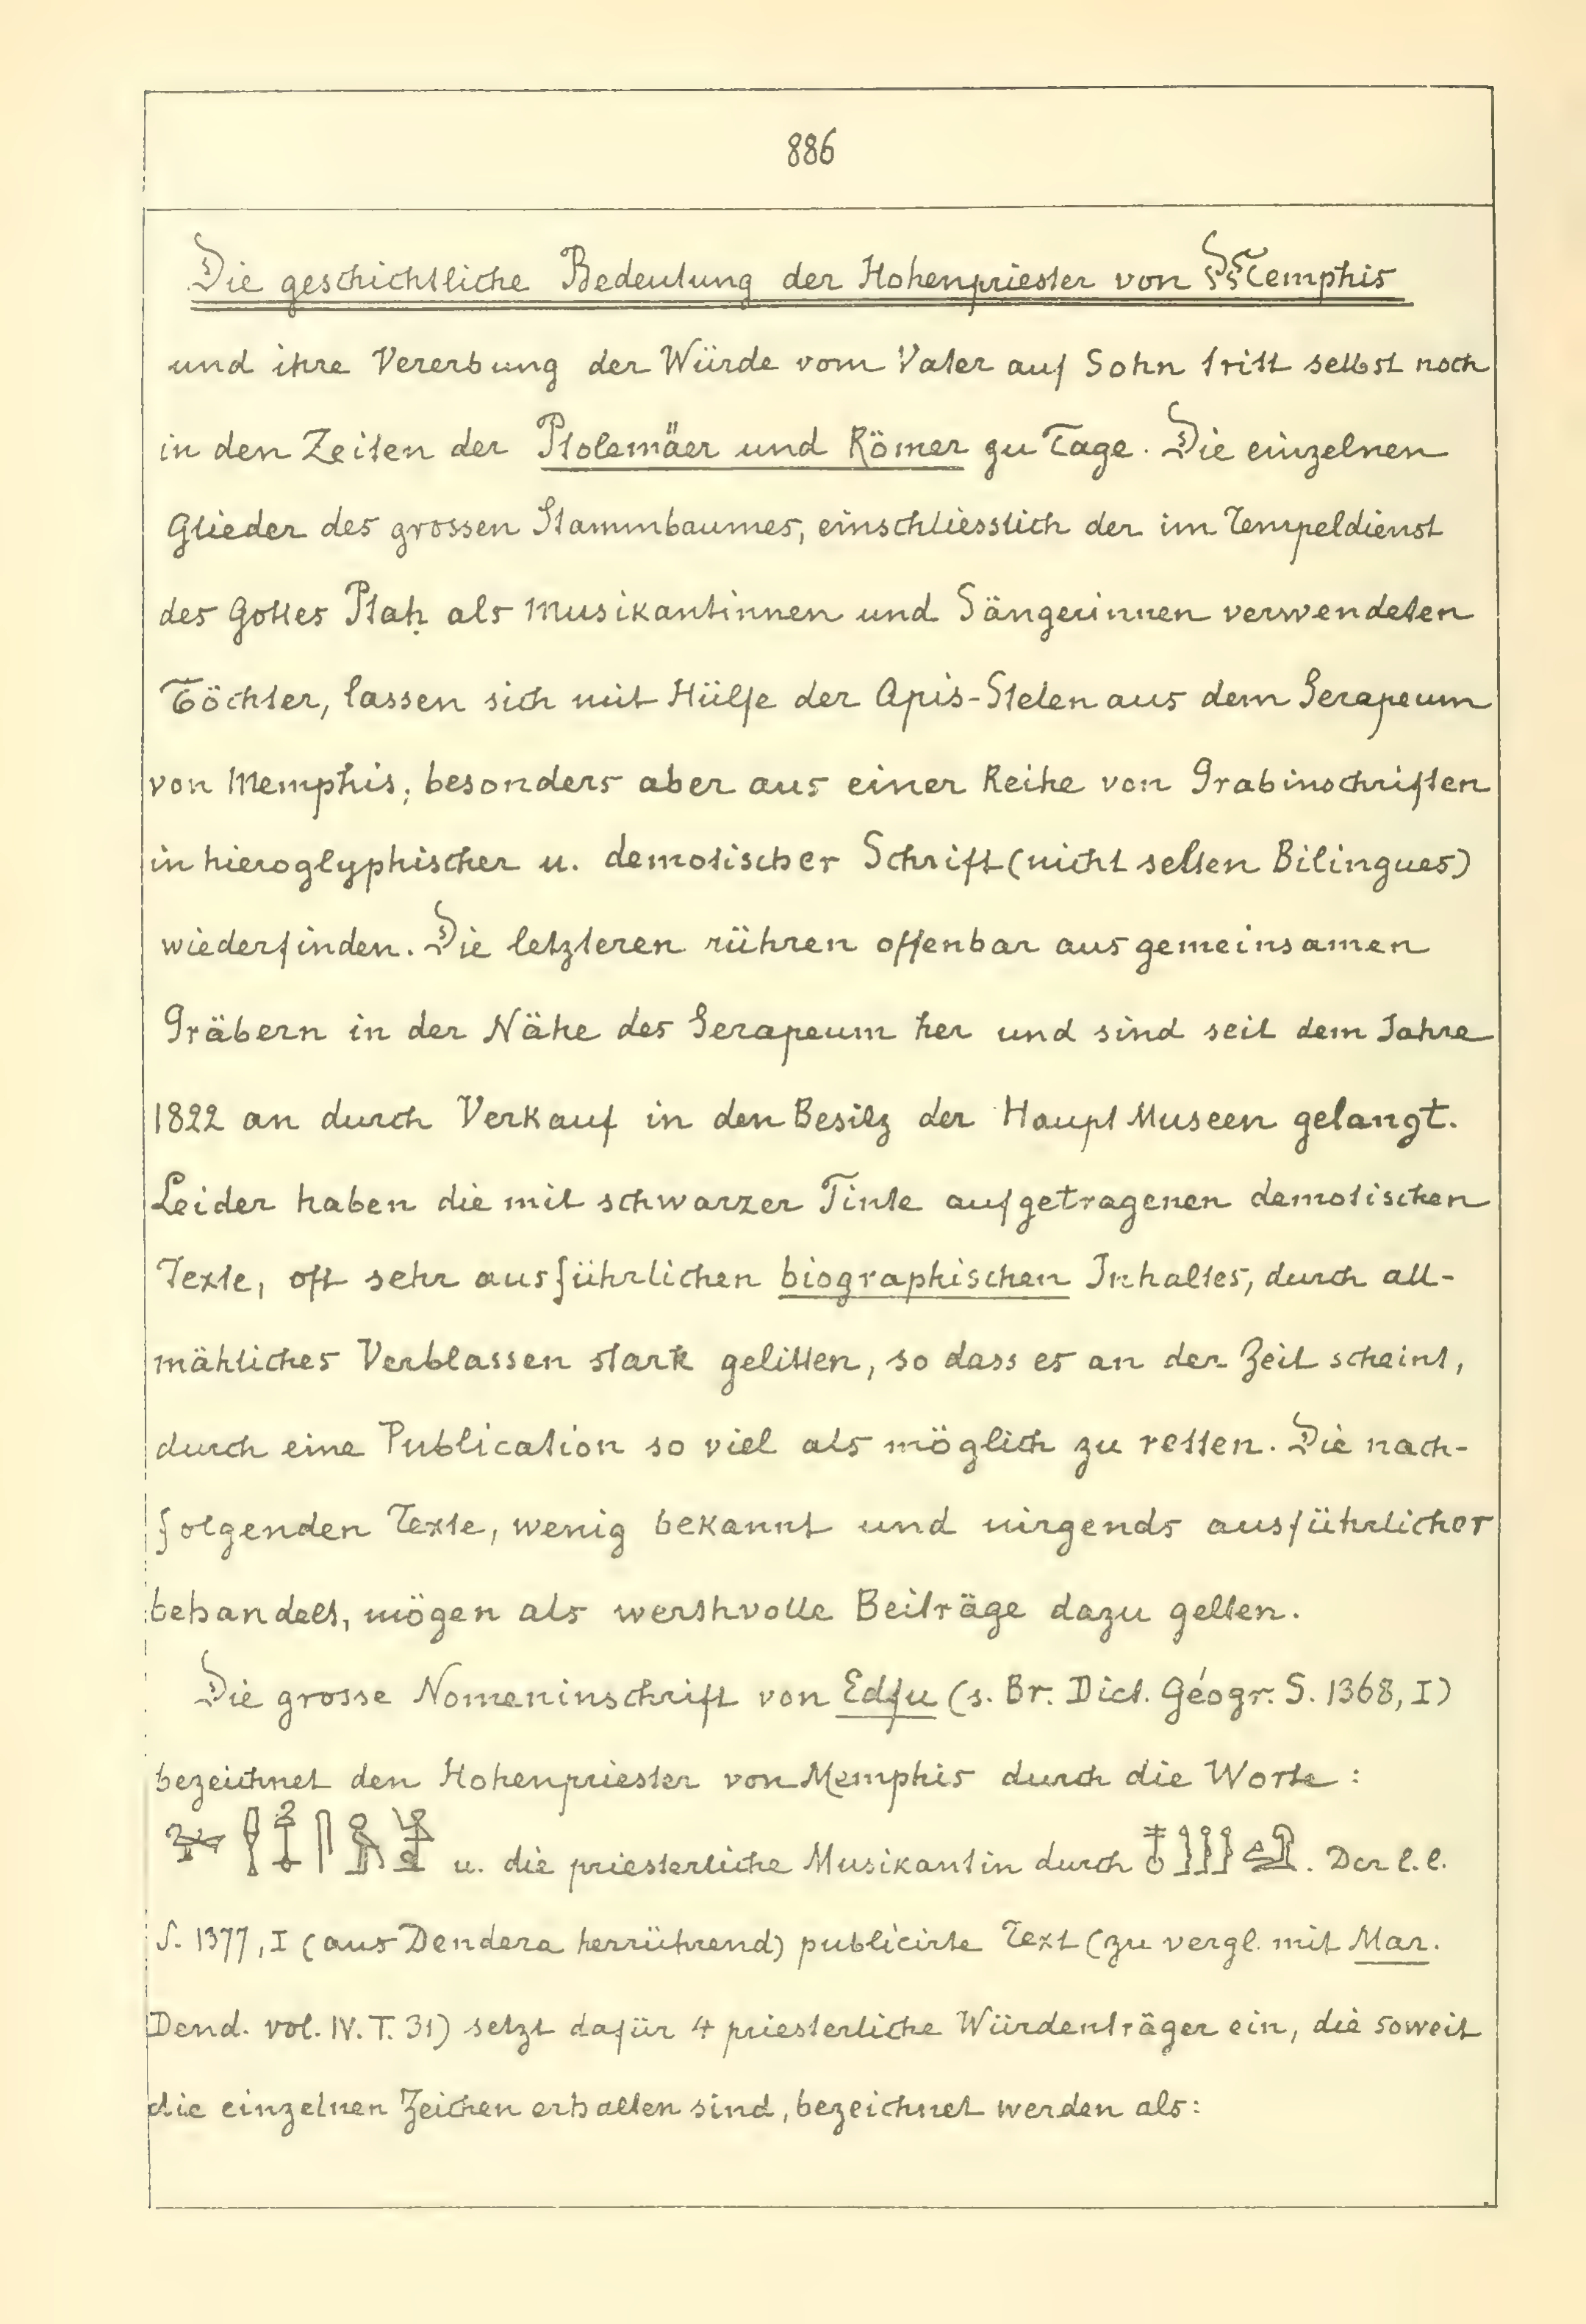 886
Die geschichtliche Bedeutung der Hohenpriester von Memphis
und ihre Vererbung der Würde vom Vater auf Sohn tritt selbst noch
in den Zeiten der Ptolemäer und Römer zu Tage. Die einzelnen
Glieder des grossen Stammbaumes, einschliesslich der im Tempeldienst
des Gottes Ptaḥ als Musikantinnen und Sängerinnen verwendeten
Töchter, lassen sich mit Hülfe der Apis-Stelen aus dem Serapeum
von Memphis, besonders aber aus einer Reihe von Grabinschriften
in hieroglyphischer u. demotischer Schrift (nicht selten Bilingues)
wiederfinden. Die letzteren rühren offenbar aus gemeinsamen
Gräbern in der Nähe des Serapeum her und sind seit dem Jahre
1822 an durch Verkauf in den Besitz der Haupt Museen gelangt.
Leider haben die mit schwarzer Tinte aufgetragenen demotischen
Texte, oft sehr ausführlichen biographischen Inhaltes, durch all-
mähliches Verblassen stark gelitten, so dass es an der Zeit scheint,
durch eine Publication so viel als möglich zu retten. Die nach-
folgenden Texte, wenig bekannt und nirgends ausführlicher
behandelt, mögen als werthvolle Beiträge dazu gelten.
Die grosse Nomeninschrift von Edfu (s. Br. Dict. Géogr. S. 1368, I)
bezeichnet den Hohenpriester von Memphis durch die Worte:
u. die priesterliche Musikantin durch . Der l. l.
S. 1377, I (aus Dendera herrührend) publicirte Text (zu vergl. mit Mar.
Dend. vol. IV. T. 31) setzt dafür 4 priesterliche Würdenträger ein, die soweit
die einzelnen Zeichen erhalten sind, bezeichnet werden als: